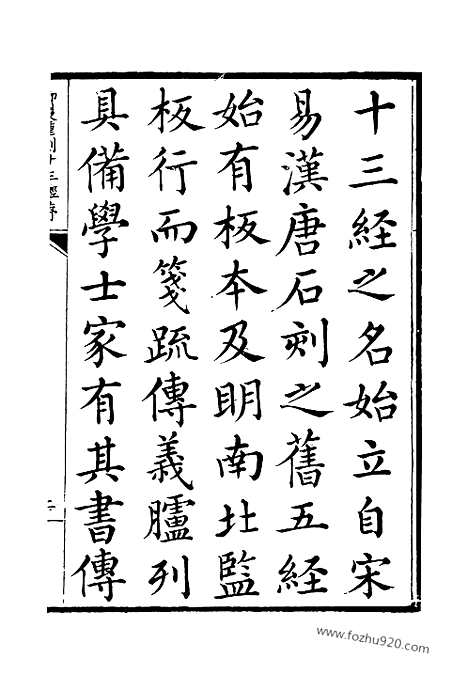 十三經之名始立自宋
易漢唐石刻之舊五經
始有板本及明南北監
板行而箋疏傳義臚列
具備學士家有其書傳
www.fozhu920.com